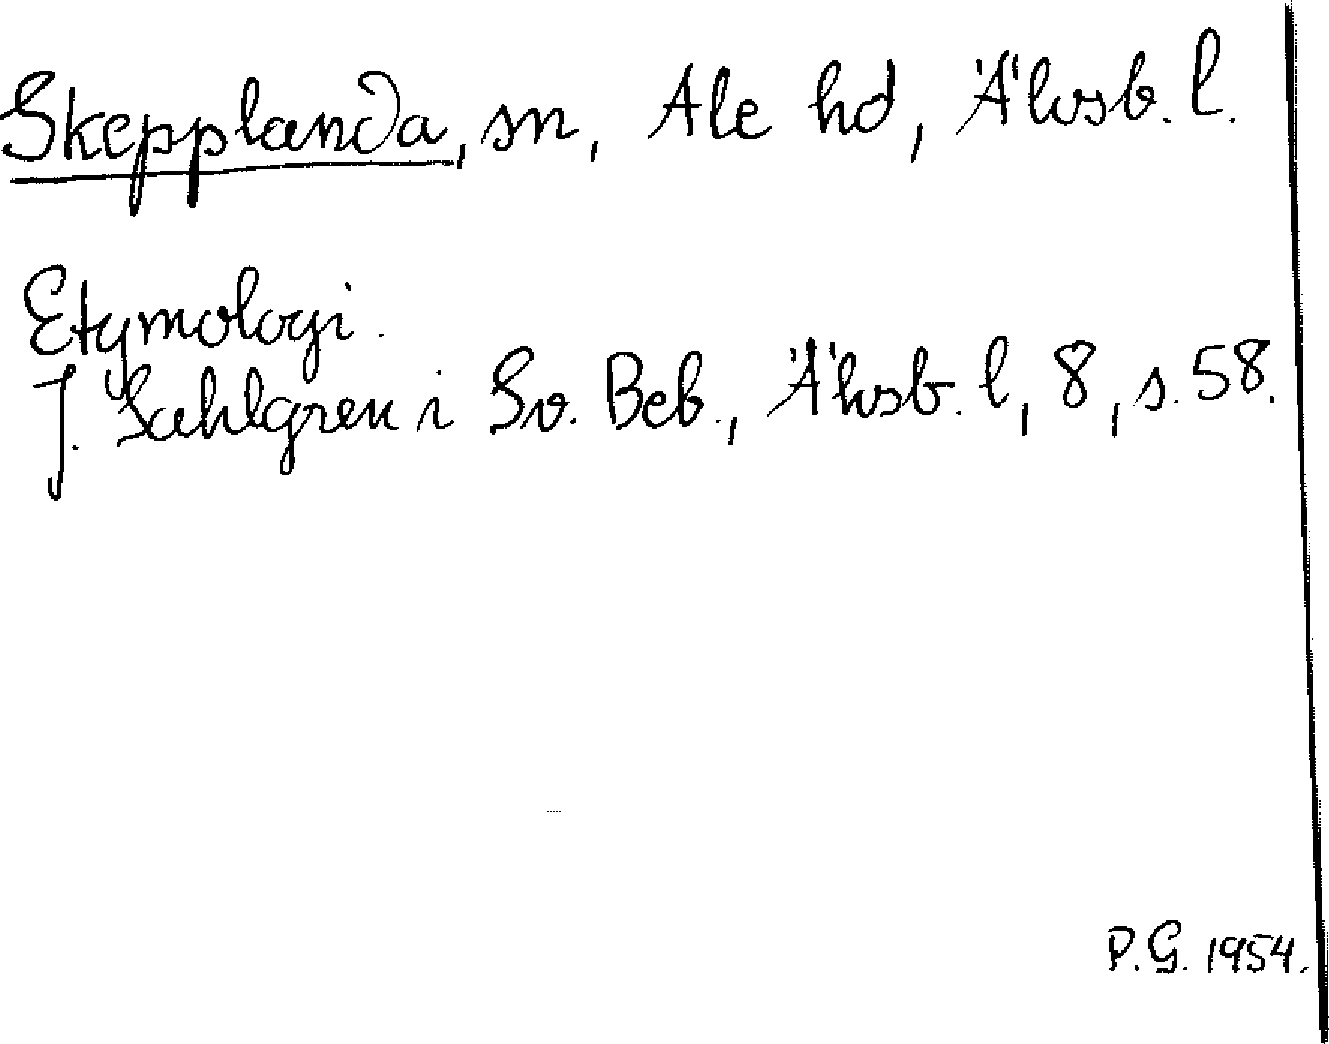 Skepplanda, sn, Ale hd, Älvsb. l.
Etymologi.
J. Sahlgren i Sv. Beb., Älvsb. l, 8, s. 58.
P.G. 1954.